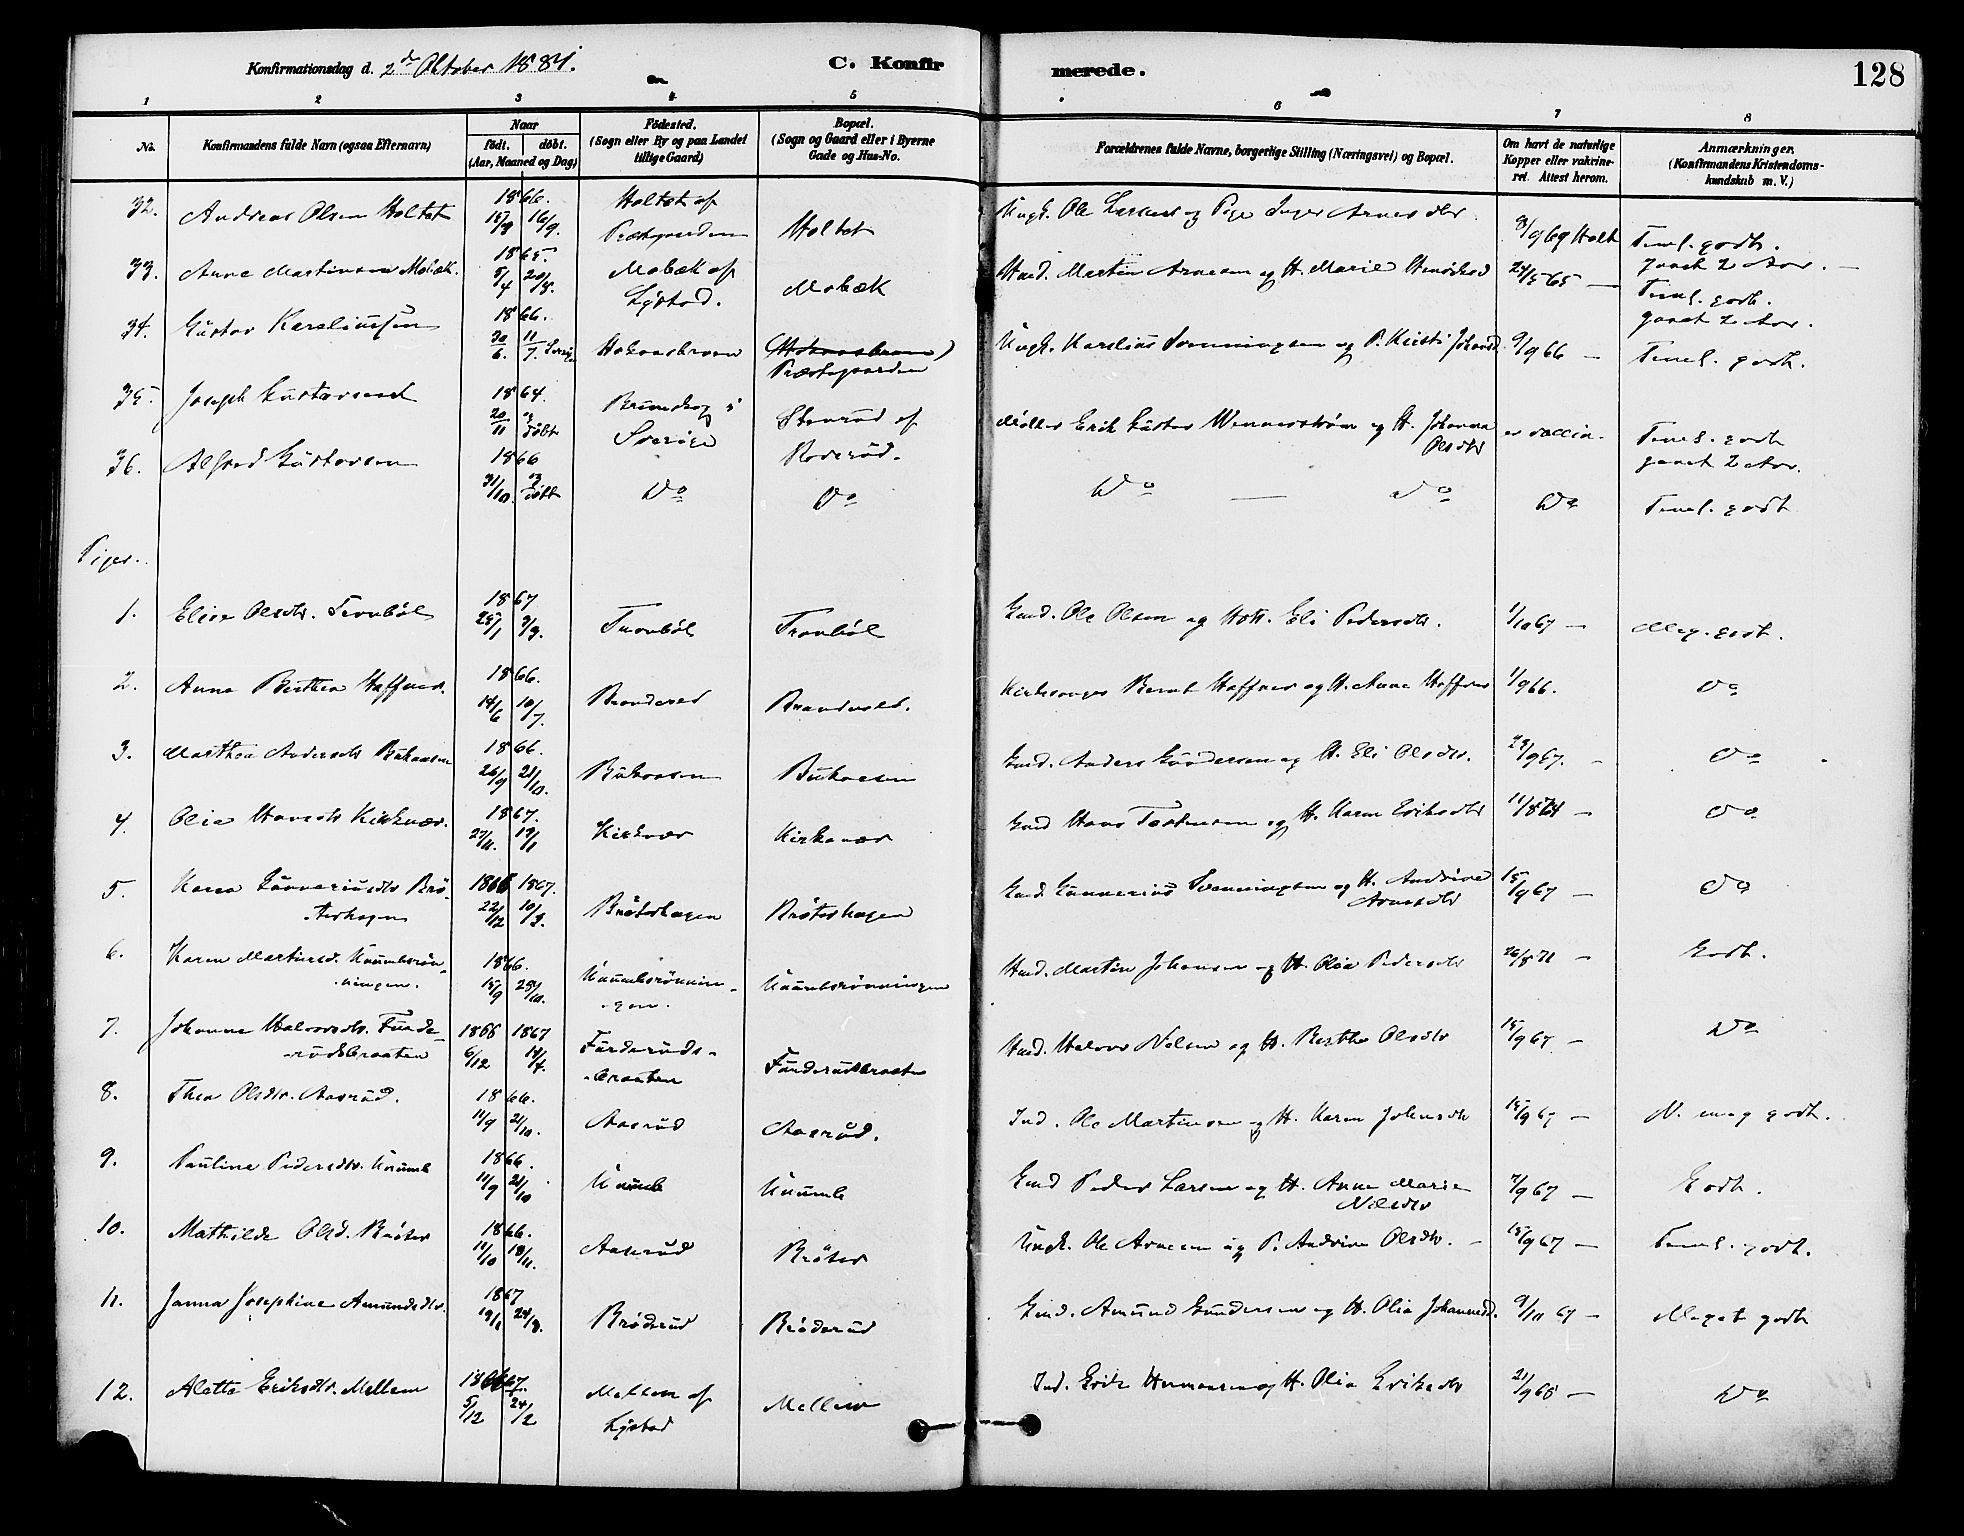 Konfirmationsdag d. 2de Oktober 1881. C. Konfirmerede. 128
1 2 3 4 5 6 7 8
No. Konfirmandens fulde Navn (ogsaa Efternavn) Naar født. døbt. (Aar, Maaned og Dag) Fødested. (Sogn eller By og paa Landet tillige Gaard) Bopæl. (Sogn og Gaard eller i Byerne Gade og Hus-No. Forældrenes fulde Navne, borgerlige Stilling (Næringsvei) og Bopæl. Om havt de naturlige Kopper eller vakcineret. Attest herom. Anmærkninger. (Konfirmandens Kristendomskundskab m. V.)
32. Andreas Olsen Holtet 1866. 16/9. Holtet af Præstgaarden Holtet Ungk. Ole Larsen og Pige Inger Arnesdtr. 3/9 69 Holt Temel. godt. gaaet 2 Aar.
33. Arne Martinsen Mobæk. 1865. 5/4 20/8. Mobæk af Lystad. Mobæk Husd. Martin Arnesen og H. Marie 24/5 65 — Temel. godt. gaaet 2 Aar.
34. Gustav Karsliussen 1866. 30/6. 11/7. Præstegaarden Ungk. Karslius Svenningsen og P. Kristi 9/9 66 — Temel. godt.
35. Joseph Gustavsen 1864 20/11 og døbt Brunskog i Sverige Stenrud af Møller Erik Gustav Wennerstrøm og H. Johanna Olsdtr er vaccin. Temel. godt gaaet 2 Aar.
36. Alfred Gustavsen 1866 31/10. og døbt Do Do Do — Do Do Temel. godt
Piger.
1. Elise Olsdtr. Trovbøl 1867 25/1 3/3. Trovbøl Trovbøl Gmd. Ole Olsen og H. Eli Pedersdtr. 1/10 67 — Meg. godt.
2. Anna Berthea Haffner. 1866. 14/6 10/7. Brandval Brandvold. Kirkesanger Bernt Haffner og H. Anne Haffner 1/9 66. Do
3. Marthea Andersdtr Bukaasen 1866. 26/9 21/10. Bukaasen Bukaasen Gmd. Anders Gundersen og H. Eli Olsdtr. 29/9 67. — Do
4. Olia Hansdtr Kirknær. 1867. 19/1 Kirknær Kirkenær Gmd Hans Torstensen og H. Karen Eriksdtr 11/8 — Do
5. Karen Gunneriusdtr Brøterhagen 1866 1867. 22/12 10/3. Brøterhagen Brøterhagen Gmd. Gunnerius Svenningsen og H. Andrine Arnesdtr 15/9 67 — Do
6. Karen Martinsd. Kuumbsrønningen. 1866. 15/9 25/10. Kuumbsrønningen. Kuumbsrønningen Husd. Martin Johansen og H. Olia Pedersdtr 26/8 71 — Godt.
7. Johanne Halvorsdtr. Funderudsbraaten 1866 1867 6/12 14/4. Funderudsbraaten Funderudsbraaten Husd. Halvor Nilsen og H. Berthe Olsdtr 15/9 67 — Do
8. Thea Olsdtr. Aasrud. 1866. 11/9 21/10. Aasrud Aasrud. Ind. Ole Martinsen og H. Karen Johnsdtr 15/9 67 — N. meg godt.
9. Pauline Pedersdtr. Kuumb 1866. 11/9 21/10 Kuumb Kuumb Gmd Peder Larsen og H. Anne Marie Nilsdtr 7/9 67 — Godt.
10. Mathilde Olsd. Brøter 1866. 11/10 18/11. Aasrud Brøter Ungk. Ole Arnesen og P. Andrine Olsdtr. — 15/9 67 — Temel. godt.
11. Janna Josephine Amundsdtr. 1867 19/1 24/3. Brøderud Brøderud Gmd. Amund Gundersen og H. Olia Johannesd. 9/10 67 — Meget godt
12. Alette Eriksdtr. Mellem 1866 67. 5/12 24/2 Mellem af Lystad Mellem Ind. Erik Hermansen og H. Olia Eriksdtr 21/9 68 — Do